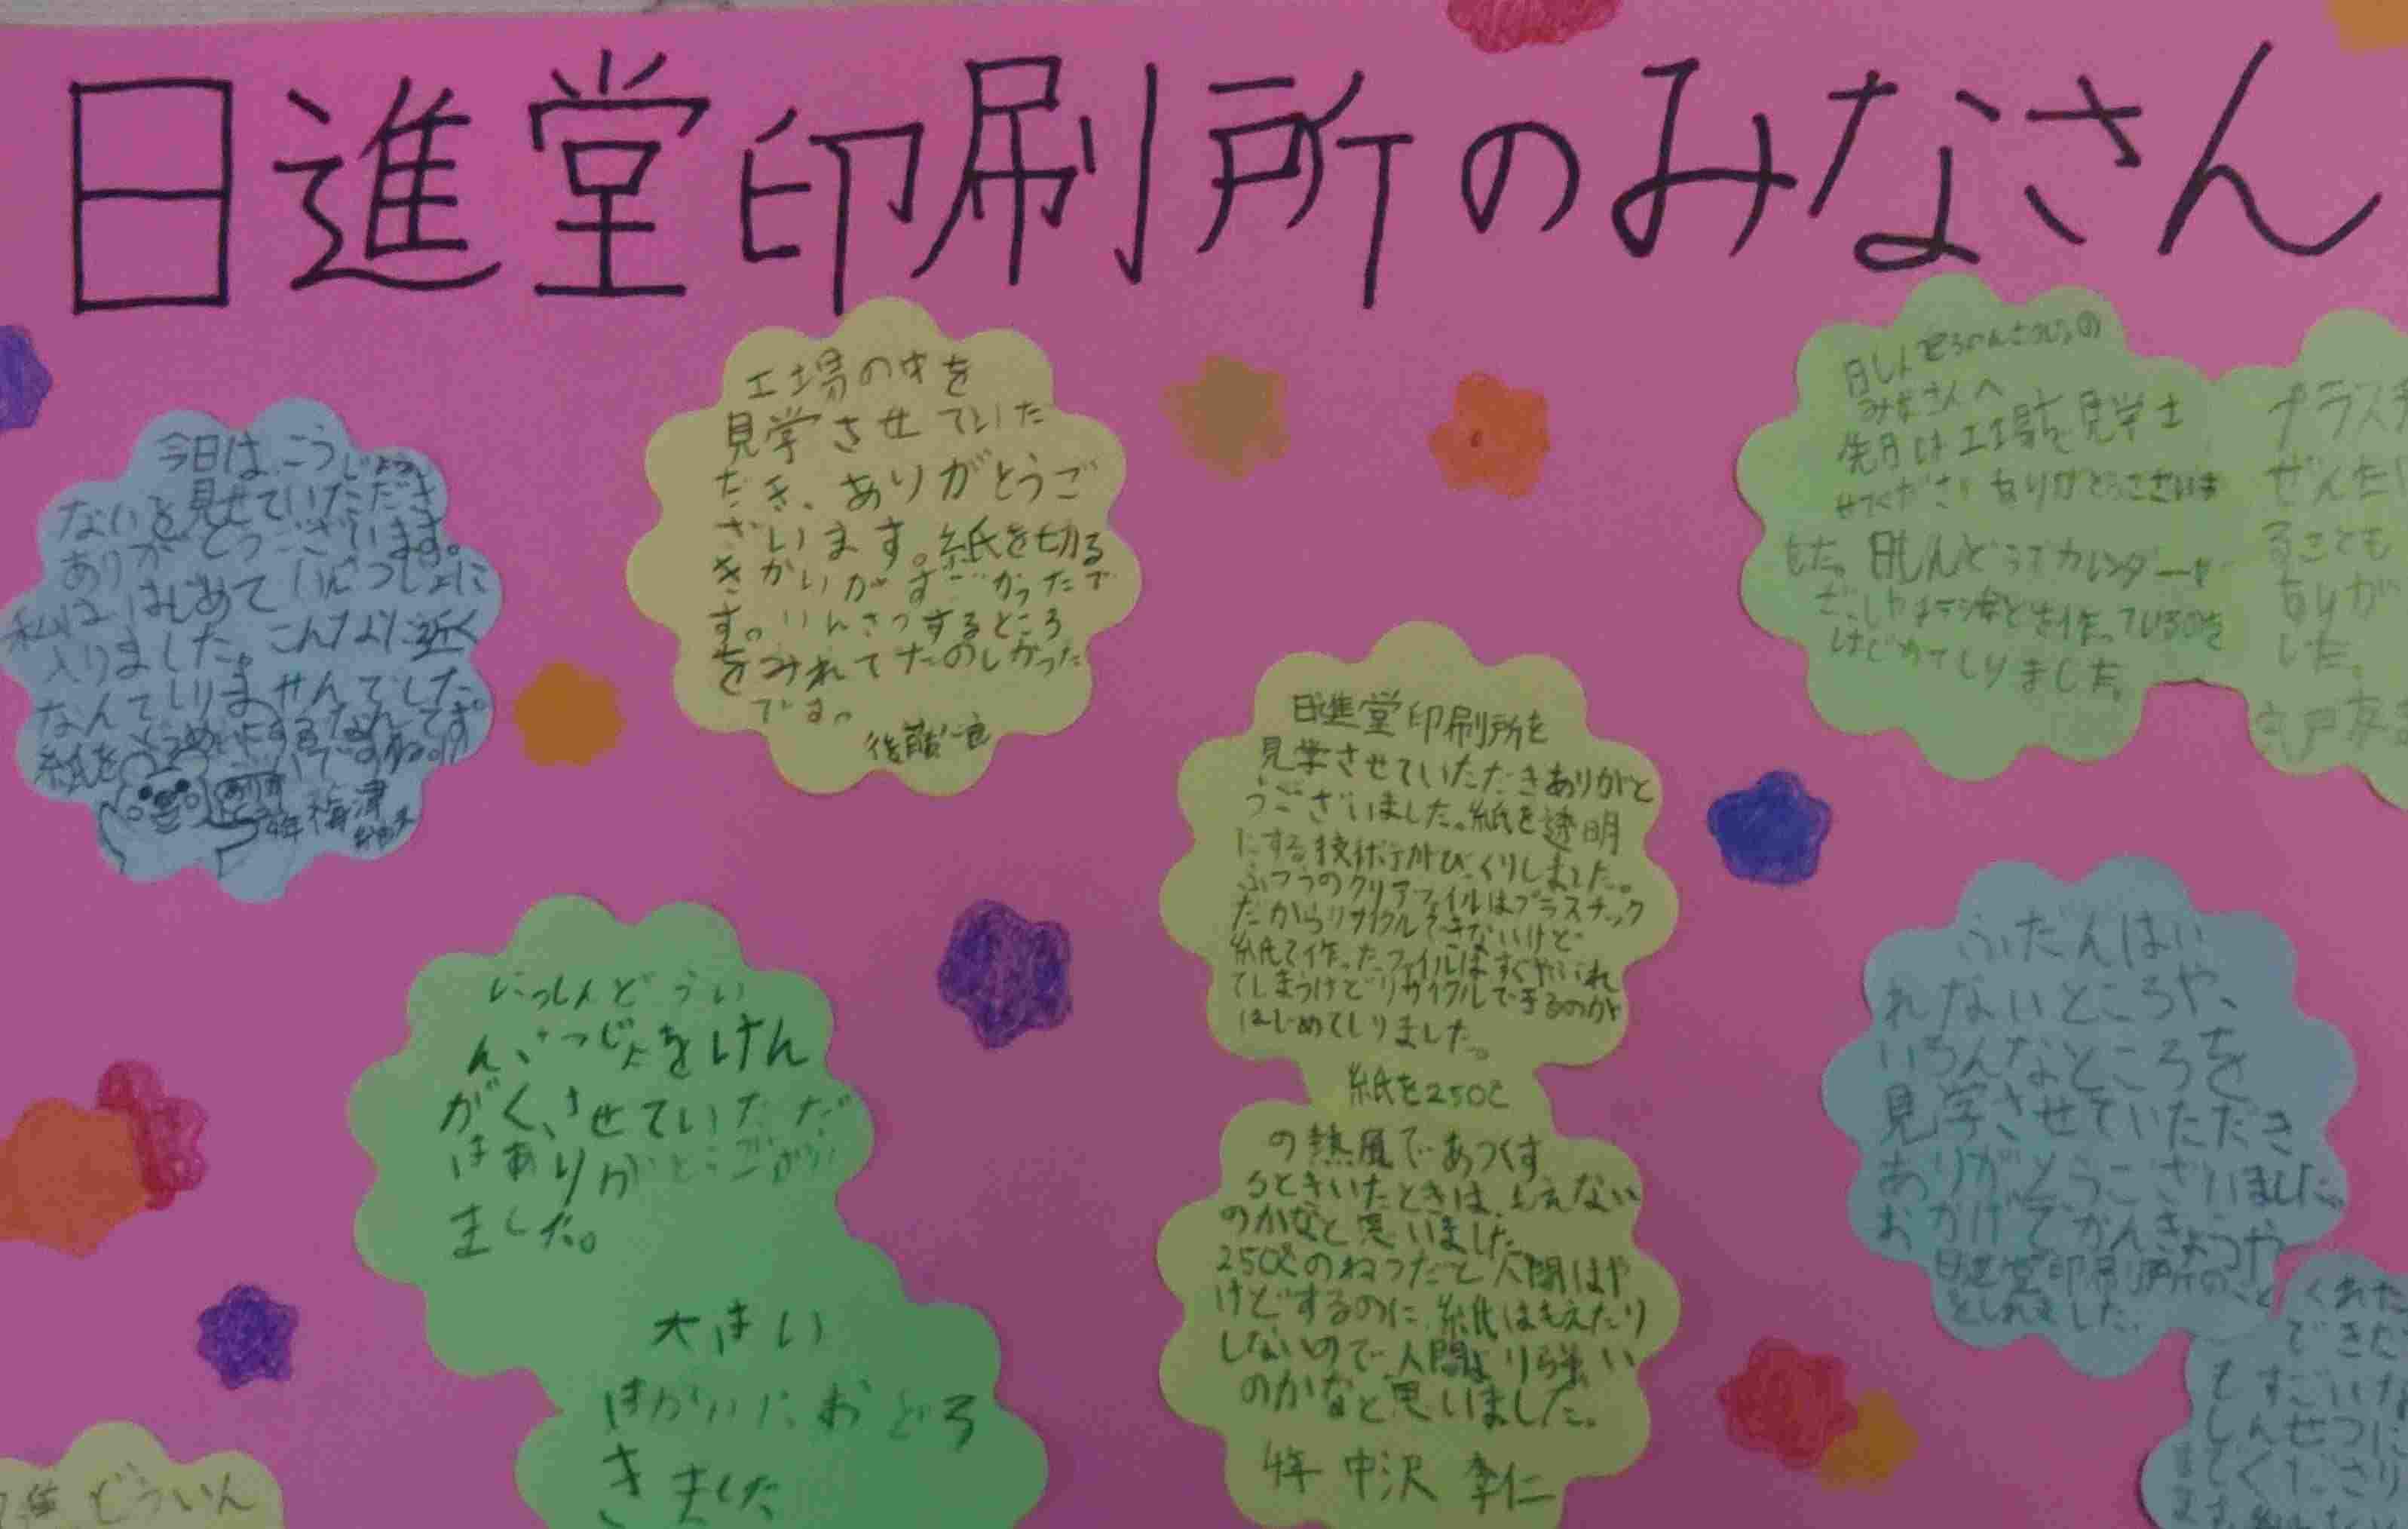 日進堂印刷所のみなさん
今日は、こうじょう
ないを見せていただき
ありがとうございます。
私は、はじめていんさつじょに
入りました。こんなに近く
なんてしりませんでした。
紙を
4年 梅津
工場の中を
見学させていた
だき、ありがとうご
ざいます。紙を切る
きかいがすごかったで
す。いんさつするところ
をみれてたのしかった
です。
後藤
日しんどういんさつじょの
みなさんへ
先月は工場を見学さ
せてくださいありがとうございま
した。日しんどうでカレンダーや
ざっしや
はじめてしりました。
プラスチ
ぜんたい
ることも
ありが
した。
日進堂印刷所を
見学させていただきありがと
うございました。紙を透明
にする技術がびっくりしました。
ふつうのクリアファイルはプラスチック
だからリサイクルできないけど
紙で作ったファイルはすぐやぶれ
てしまうけどリサイクルできるのが
はじめてしりました。
紙を250℃
の熱風であつくす
るときいたときは、もえない
のかなと思いました。
250℃のねつだと人間はや
けどするのに、紙はもえたり
しないので人間より強い
のかなと思いました。
4年 中沢 李仁
にっしんどうい
んさつじょをけん
がく、させていただ
きありがとうござい
ました。
大きい
きかいにおどろ
きました
ふだんはい
れないところや、
いろんなところを
見学させていただき
ありがとうございました。
おかげでかんきょうや
日進堂印刷所のこと
をしれました。
くれた
できた
すごいな
しんせつに
てくださり
どういん